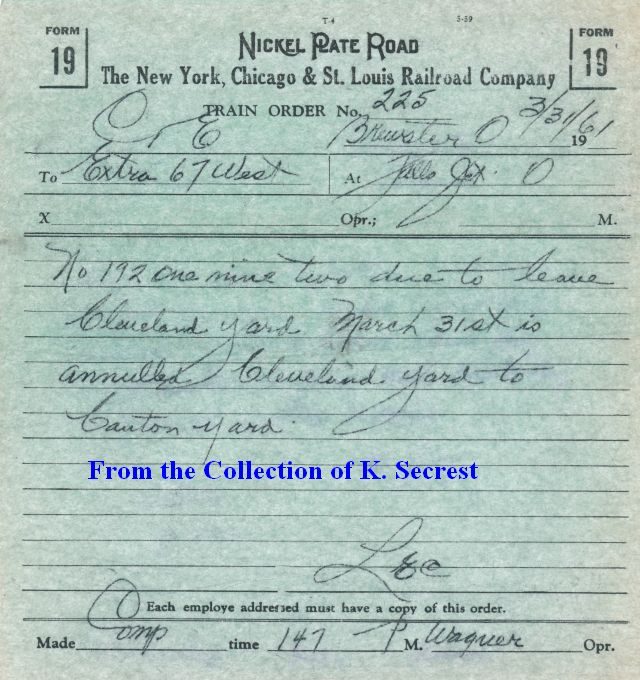 T-4 5-59
FORM 19 NICKEL PLATE ROAD FORM 19
The New York, Chicago & St. Louis Railroad Company
TRAIN ORDER No. 225
C & E Brewster O 3/31/1961
To Extra 67 West At Falls Jct. O
X Opr.; M.
No 192 one nine two due to leave
Cleveland yard March 31st is
annulled Cleveland yard to
Canton yard.
From the Collection of K. Secrest
Each employe addressed must have a copy of this order.
Made Comp time 147 P M. Wagner Opr.